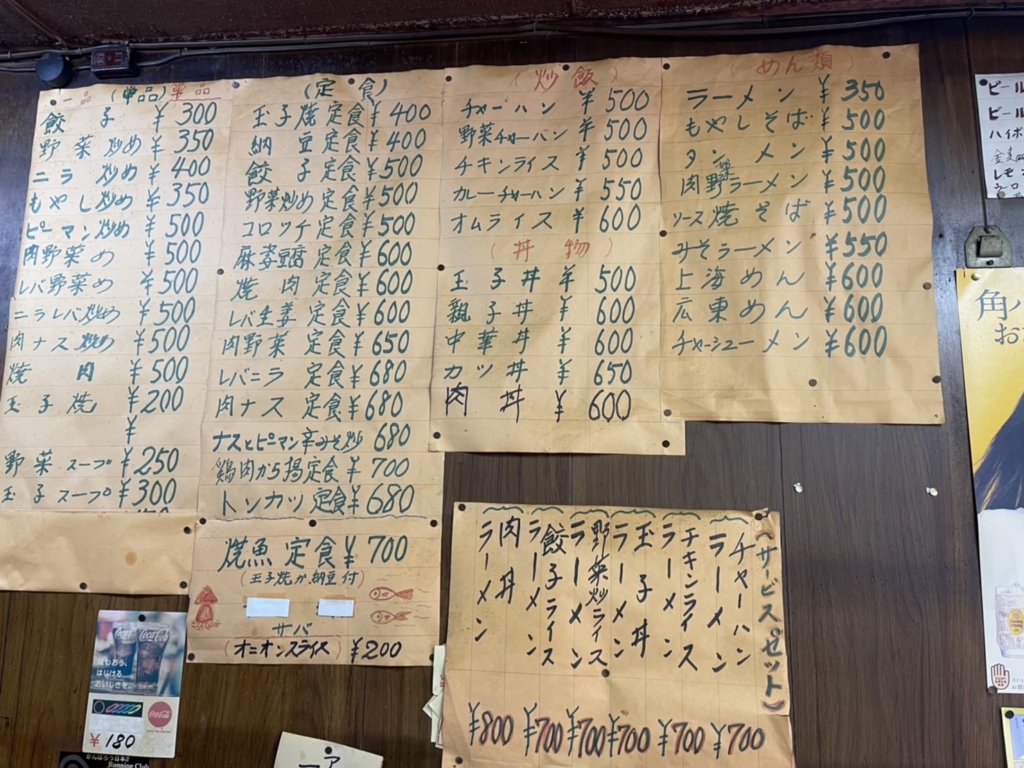 一品 (単品) 単品
餃子 ¥300
野菜炒め ¥350
ニラ炒め ¥400
もやし炒め ¥350
ピーマン炒め ¥500
肉野菜め ¥500
レバ野菜め ¥500
ニラレバ炒め ¥500
肉ナス炒め ¥500
焼肉 ¥500
玉子焼 ¥200
¥
野菜スープ ¥250
玉子スープ ¥300
(定食)
玉子焼定食 ¥400
納豆定食 ¥400
餃子定食 ¥500
野菜炒め定食 ¥500
コロッケ定食 ¥500
麻婆豆腐定食 ¥600
焼肉定食 ¥600
レバ生姜定食 ¥600
肉野菜定食 ¥650
レバニラ定食 ¥680
肉ナス定食 ¥680
ナスとピーマン辛みそ炒 680
鶏肉から揚定食 ¥700
トンカツ定食 ¥680
焼魚定食 ¥700
(玉子焼か納豆付)
サバ
(オニオンスライス) ¥200
(炒飯)
チャーハン ¥500
野菜チャーハン ¥500
チキンライス ¥500
カレーチャーハン ¥550
オムライス ¥600
(丼物)
玉子丼 ¥500
親子丼 ¥600
中華丼 ¥600
カツ丼 ¥650
肉丼 ¥600
(めん類)
ラーメン ¥350
もやしそば ¥500
タンメン ¥500
肉野菜ラーメン ¥500
ソース焼そば ¥500
みそラーメン ¥550
上海めん ¥600
広東めん ¥600
チャーシューメン ¥600
(サービスセット)
チャーハン
ラーメン
¥700
チキンライス
ラーメン
¥700
玉子丼
ラーメン
¥700
野菜炒ライス
ラーメン
¥700
餃子ライス
ラーメン
¥700
肉丼
ラーメン
¥800
ビール
ビール
ハイボ
金麦
レモ
角ハ
お
Coca-Cola
Coca-Cola
はじける、
おいしさを。
Coca-Cola
¥180
Running Club
ア